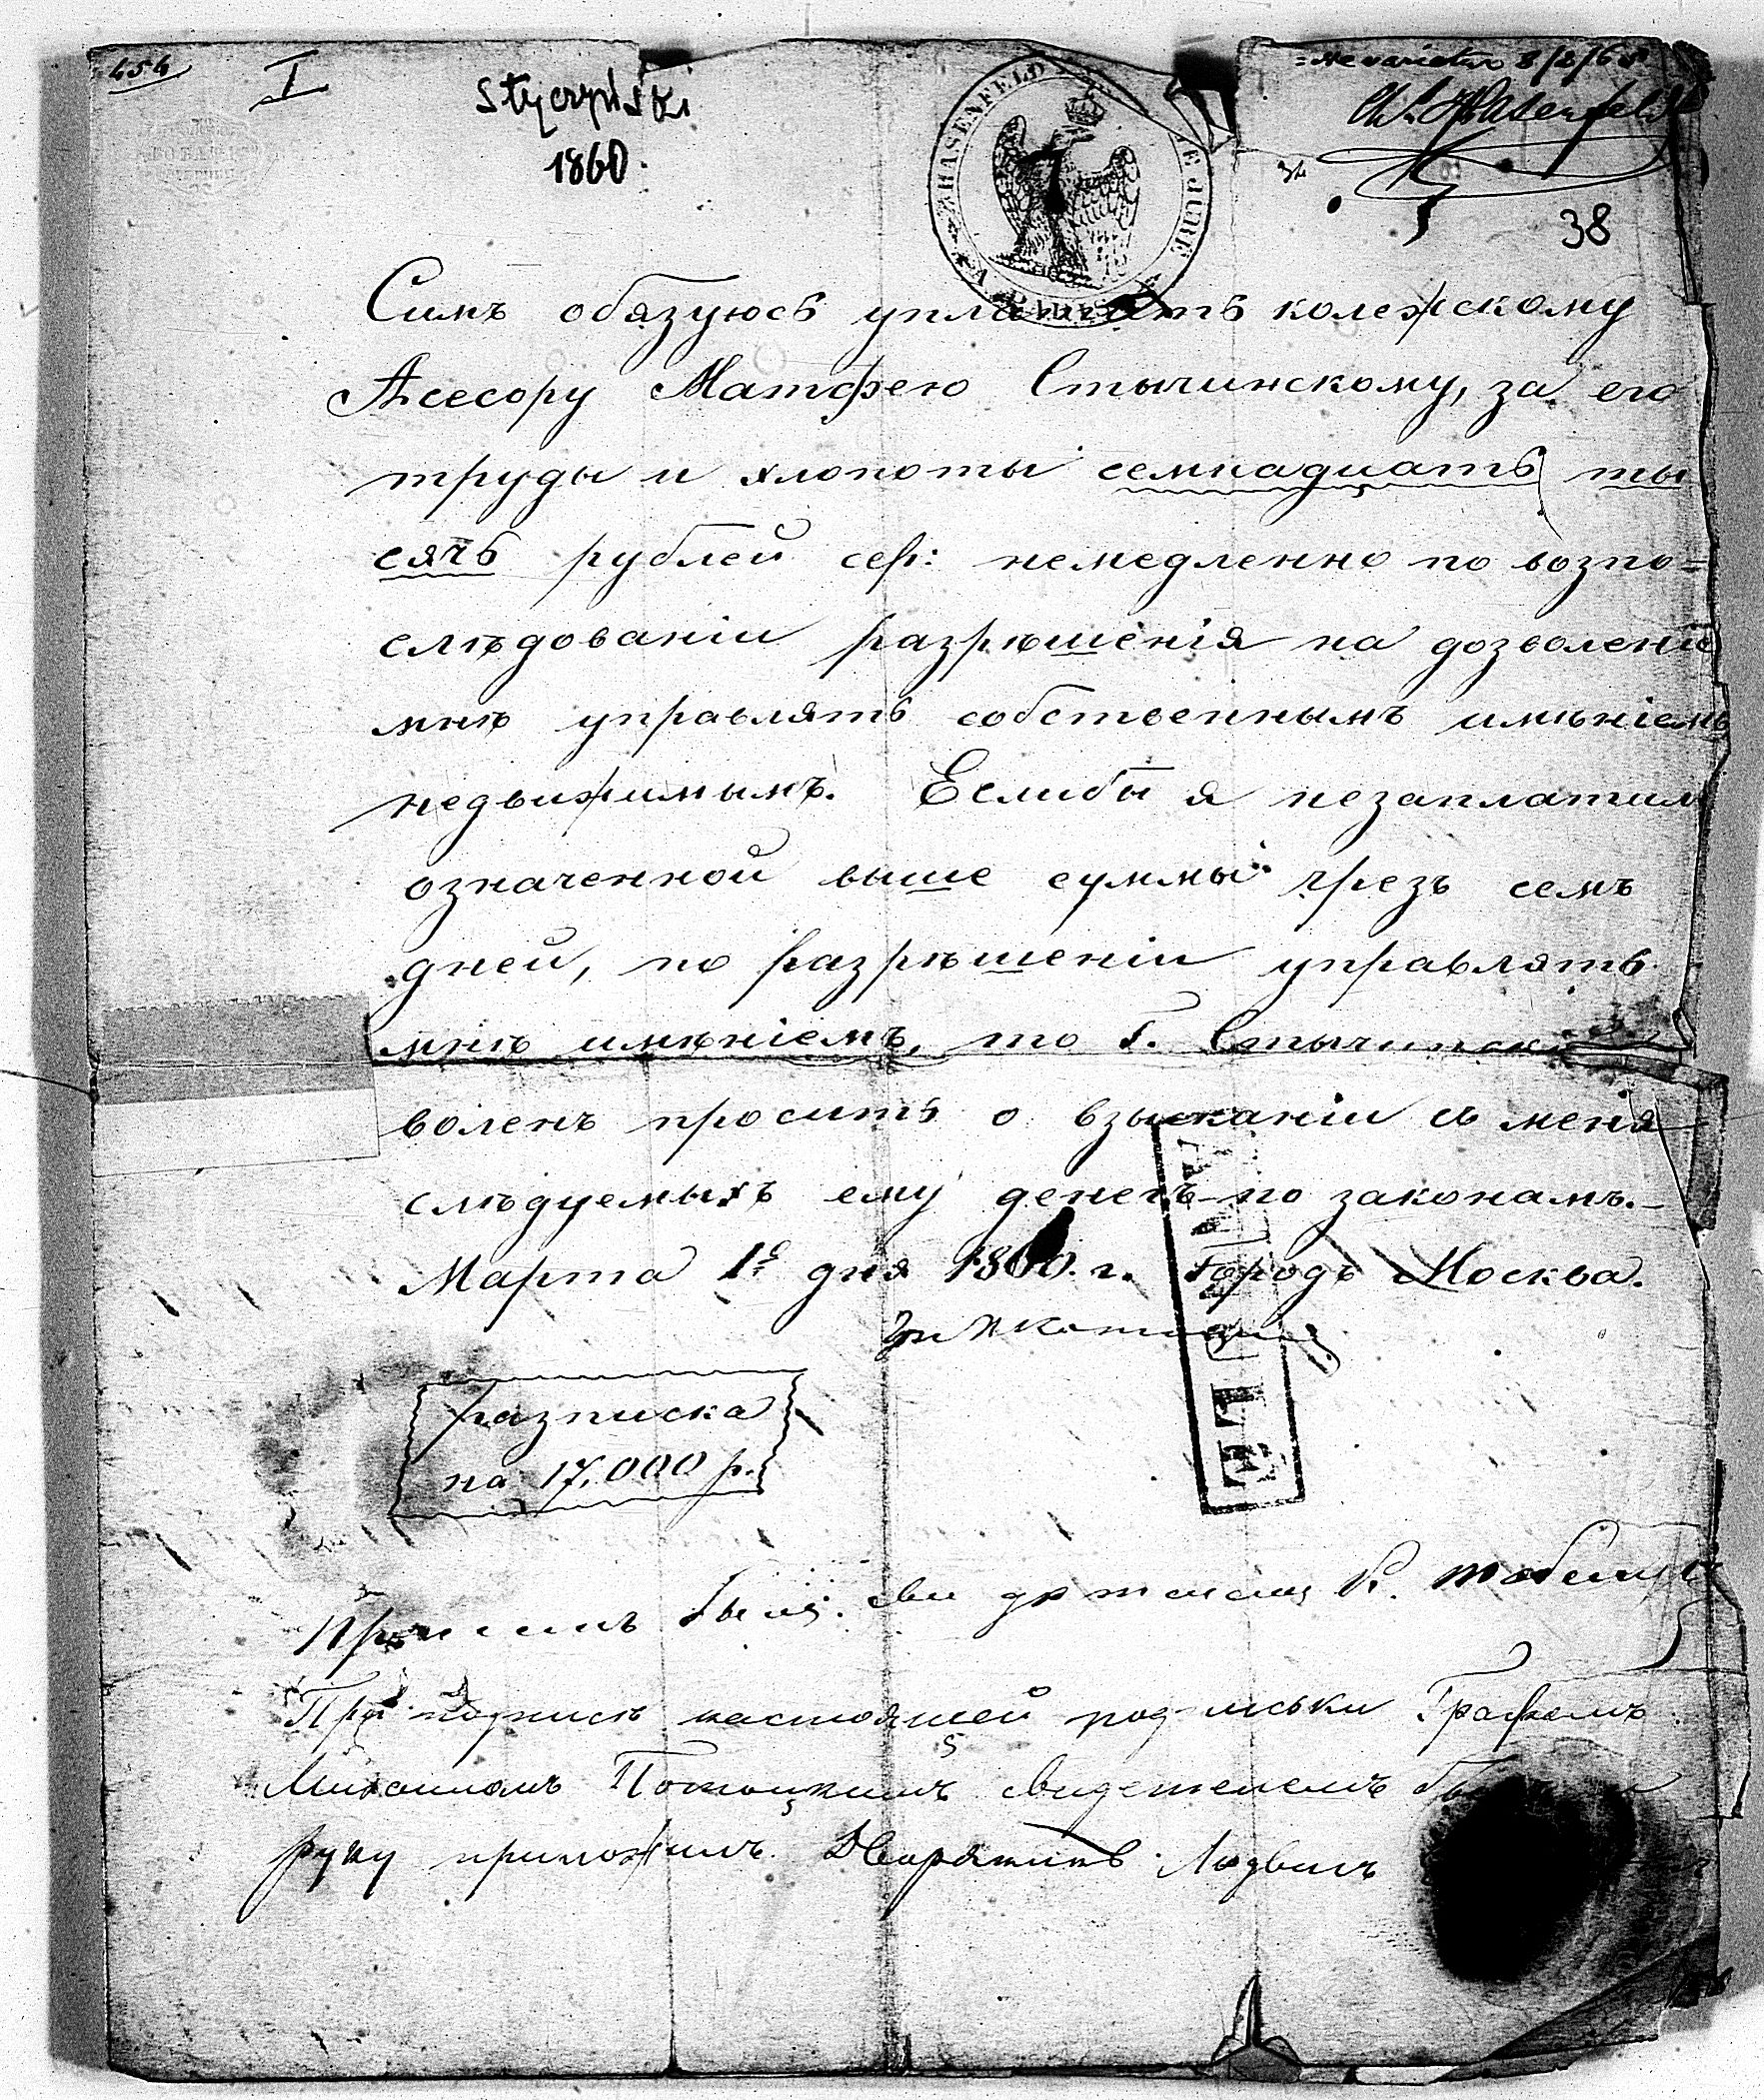 454
I
Styczyński
1860.
Ne varietur 8/2/65
Ch. L. Hasenfeld
HASENFELD JURÉ A PARIS
34
38
Симъ обязуюсь уплатить колежскому
Асесору Матфею Стычинскому, за его
труды и хлопоты семнадцать ты
сячь рублей сер: немедленно по возпо=
слѣдованіи разрѣшенія на дозволеніе
мнѣ управлять собственнымъ имѣніемъ
недвижимымъ. Еслибы я незаплатилъ
означенной выше суммы чрезъ семъ
дней, по разрѣшеніи управлять
мнѣ имѣніемъ, то Г. Стычинскій
воленъ просить о взысканіи съ меня
слѣдуемыхъ ему денегъ по законамъ.
Марта 1го дня 1860. г. Городъ Москва.
разписка
на 17.000 р.
При
настоящей Графомъ
Михаиломъ Потоцкимъ свидетелемъ
руку приложилъ Дворянинъ Людвигъ